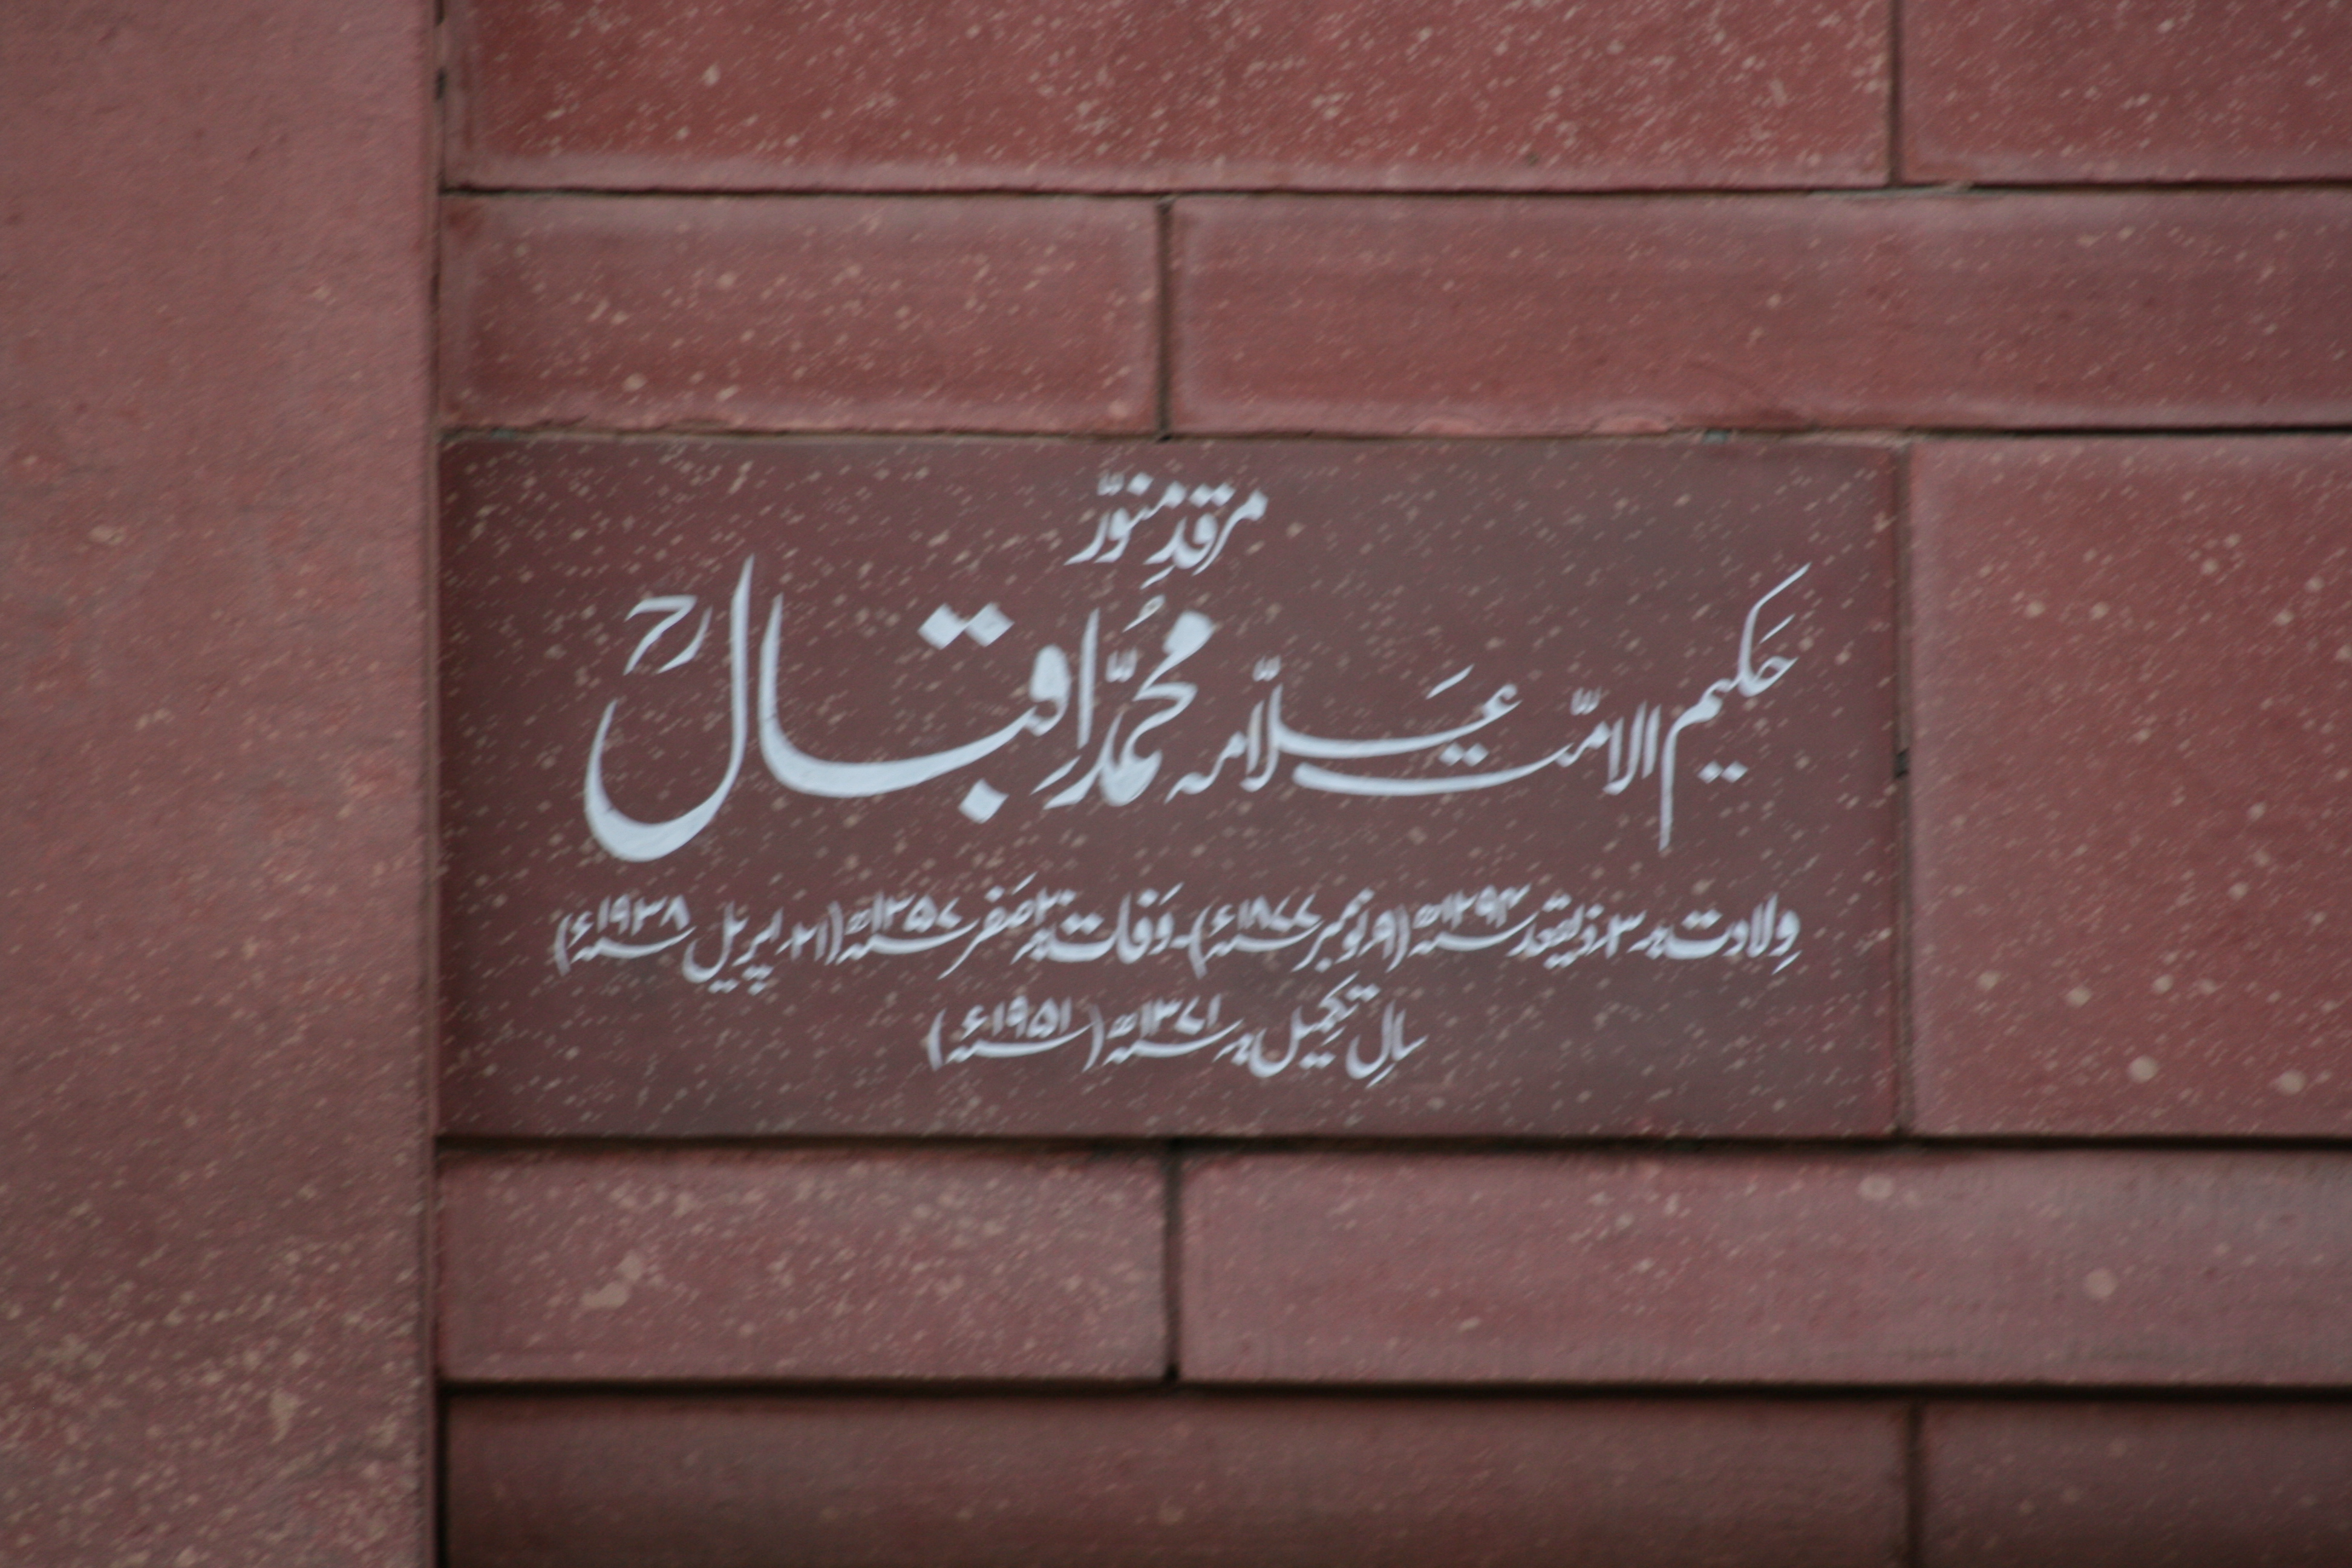 مرقدِ منوّر
حکیم الامّت علّامہ محمّد اِقبال رح
وِلادت: ۳؍ ذیقعد ۱۲۹۴ھ (۹؍ نومبر ۱۸۷۷ء) - وَفات: ۲۰ صَفر ۱۳۵۷ھ (۲۱؍ اپریل ۱۹۳۸ء)
سالِ تکمیل: ۱۳۷۱ھ (۱۹۵۱ء)